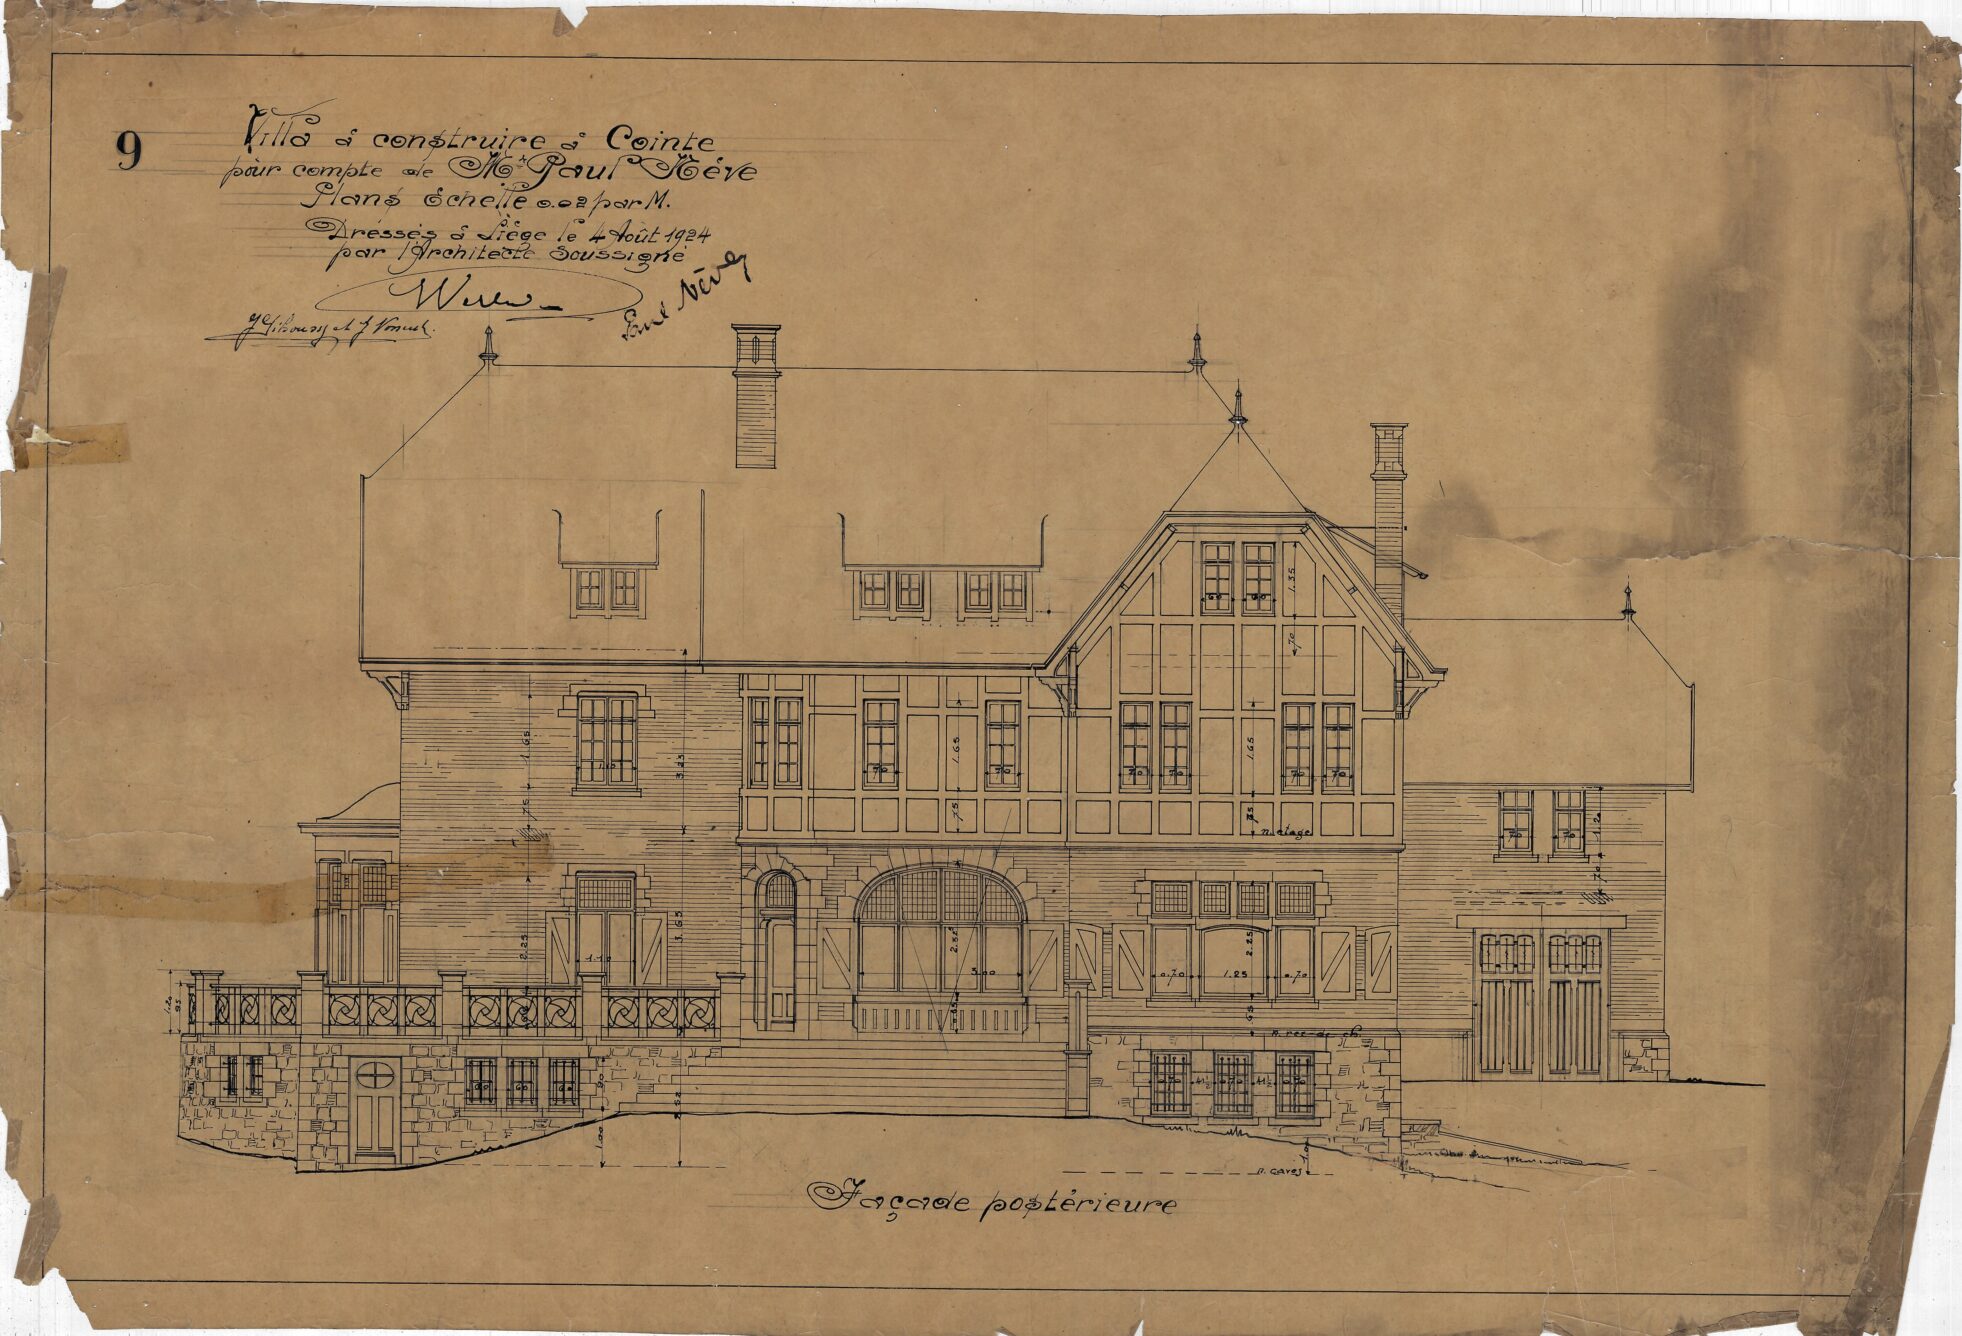 9
Villa à construire à Cointe
pour compte de Mr Paul Nève
Plans Echelle 0.02 par M.
Dressés à Liège le 4 Août 1924
par l'Architecte Soussigné
Paul Nève
1.35
60 60
.70
1.65
1.10
3.23
.75
70
1.65
70
.75
70 70
1.65
70 70
.85
n. etage
70 70
1.20
.70
2.25
1.10
3.65
2.52
3.00
2.25
0.70
1.25
0.70
.65
n. rez-de-ch.
1.20
.95
60 60 60
.90
1.00
2.52
70 70 70
n. caves
Façade postérieure